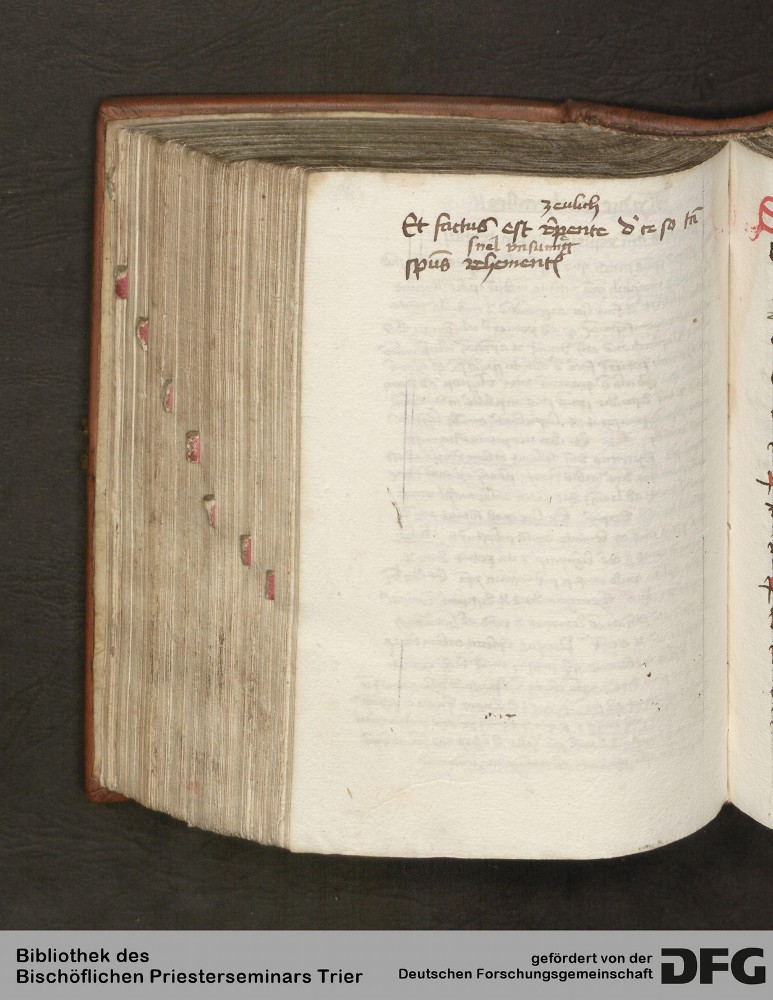 zeulich
Et factus est rep̄ente d' ce so tā
snel
spūs vehement
Bibliothek des
Bischöflichen Priesterseminars Trier
gefördert von der
Deutschen Forschungsgemeinschaft
DFG